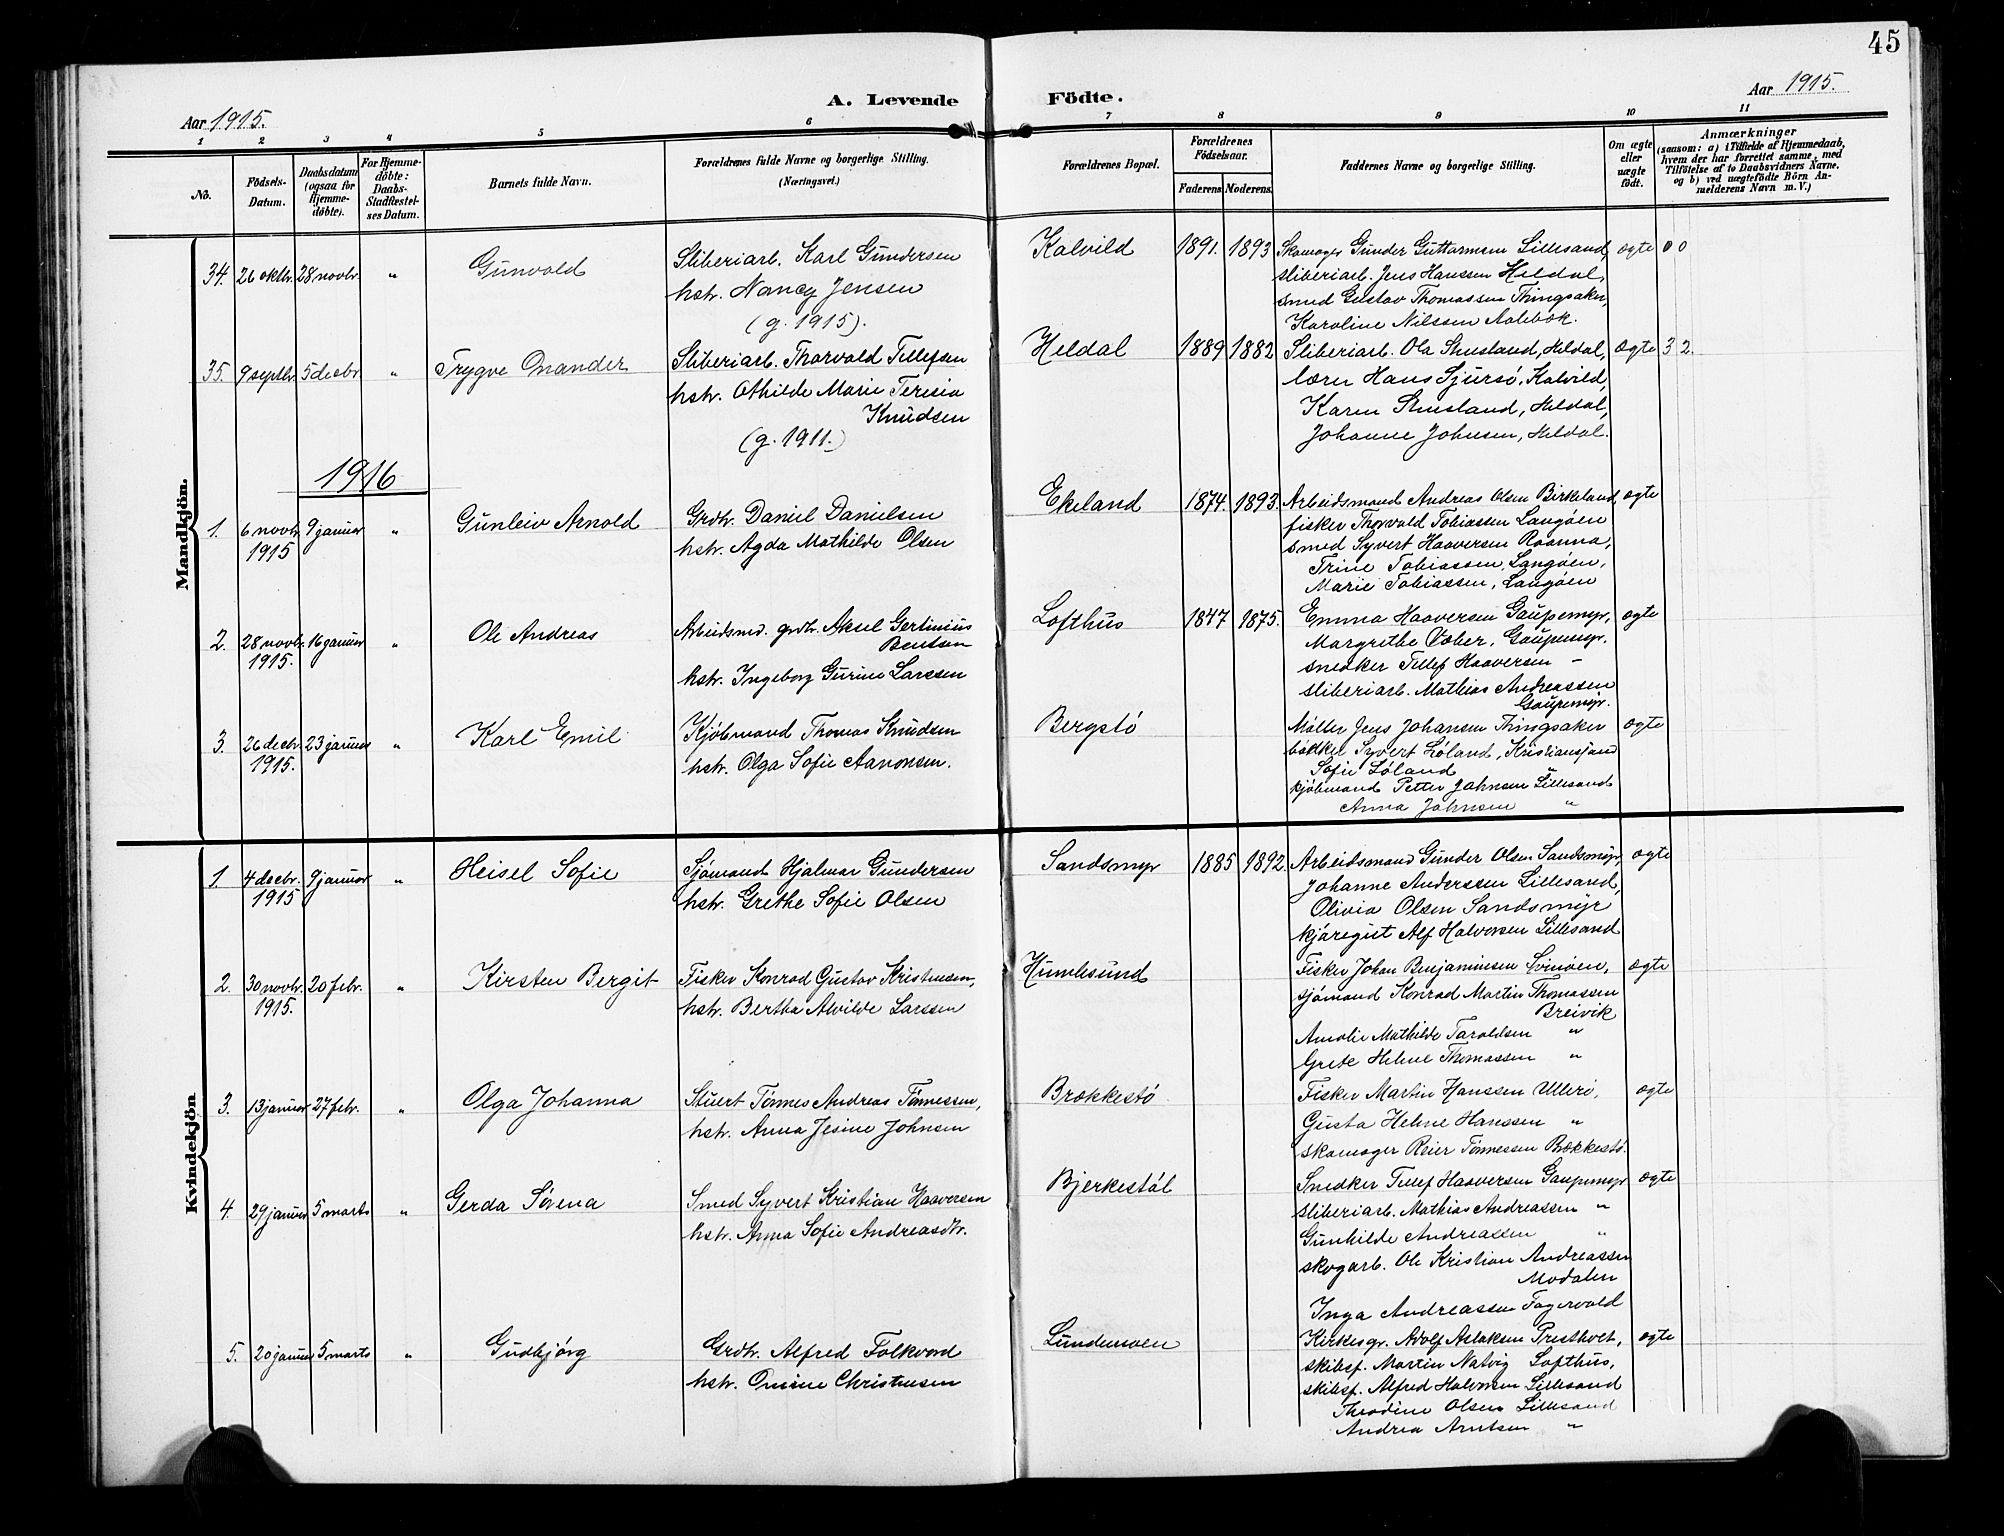 45
A. Levende Födte.
Aar 1915.
Aar 1915.
1 2 3 4 5 6 7 8 9 10 11
No.
Födsels-Datum.
Daabsdatum (ogsaa for Hjemmedöbte).
For Hjemmedöbte: Daabs-Stadfestelses Datum.
Barnets fulde Navn.
Forældrenes fulde Navne og borgerlige Stilling.
(Næringsvei.)
Forældrenes Bopæl.
Forældrenes Födselsaar.
Faderens. Moderens.
Faddernes Navne og borgerlige Stilling.
Om ægte eller uægte födt.
Anmærkninger
(saasom: a) i Tilfælde af Hjemmedaab, hvem der har forrettet samme, med Tilföielse af to Daabsvidners Navne. og b) ved uægtefödte Börn Anmelderens Navn m. V.)
Mandkjön.
34. 26 oktbr. 28 novbr. " Gunvald
Sliberiarb. Karl Gundersen
hstr. Nancy Jensen
(g. 1915).
Kalvild 1891. 1893
Skomager Gunder Guttormsen Lillesand,
sliberiarb. Jens Hanssen Heldal,
smed Gustav Thomassen Thingsaker,
Karoline Nilssen Aalebæk.
ægte 0 0
35. 9 septbr. 5 decbr. " Trygve Onander
Sliberiarb. Thorvald Tellefsen
hstr. Othilde Marie Teresia
Knudsen
(g. 1911.)
Heldal 1889 1882
Sliberiarb. Ola Stusland, Heldal,
lærer Hans Sjursö, Kalvild,
Karen Stusland, Heldal,
Johanne Johnsen, Heldal.
ægte 3 2.
1916
1. 6 novbr. 1915 9 januar " Gunleiv Arnold
Grdbr. Daniel Danielsen
hstr. Agda Mathilde Olsen
Ekeland 1874. 1893.
Arbeidsmand Andreas Olsen Birkeland
fisker Thorvald Tobiassen Langöen
smed Syvert Haaversen Roanna,
Trine Tobiassen, Langöen,
Marie Tobiassen, Langöen
ægte
2. 28 novbr. 1915. 16 januar " Ole Andreas
Arbeidsmd. grdbr. Aksel Gertinius
Bentsen
hstr. Ingeborg Gurine Larssen
Lofthus 1847 1875.
Emma Haaversen Gaupemyr,
Margrethe Væber, Gaupemyr.
snedker Tellef Haaversen –
sliberiarb. Mathias Andreassen
Gaupemyr.
ægte
3. 26 decbr. 1915. 23 januar " Karl Emil
Kjöbmand Thomas Knudsen
hstr. Olga Sofie Aanonsen.
Bergstö
Møller Jens Johansen Thingsaker
bødker Syvert Løland, Kristiansand
Sofie Løland "
kjøbmand Petter Johnsen Lillesand
Anna Johnsen "
ægte
Kvindekjön
1. 4 decbr. 1915 9 januar " Heisel Sofie
Sjömand Hjalmar Gundersen
hstr. Grethe Sofie Olsen
Sandsmyr 1885 1892.
Arbeidsmand Gunder Olsen Sandsmyr,
Johanne Anderssen Lillesand,
Olivia Olsen Sandsmyr
kjøregist Alf Halvorsen Lillesand
ægte
2. 30 novbr. 1915. 20 febr. " Kirsten Bergit
Fisker Konrad Gustav Kristensen,
hstr. Bertha Alvilde Larssen
Humlesund
Fisker Johan Benjaminsen Svinøen,
sjömand Konrad Martin Thomassen
Breivik
Amalie Mathilde Taraldsen "
Grete Helene Thomassen "
ægte
3. 13 januar 27 febr. " Olga Johanna
Stuert Tönnes Andreas Tönnessen,
hstr. Anna Jesine Johnsen
Brækkestö
Fisker Martin Hanssen Ulleró,
Gusta Helene Hanssen "
skomager Reier Tønnessen Brækkestö.
ægte
4. 29 januar 5 marts " Gerda Sörena
Smed Syvert Kristian Haaversen
hstr. Anna Sofie Andreasdtr.
Bjerkestöl
Snedker Tellef Haaversen Gaupemyr
sliberiarb. Mathias Andreassen "
Gunhilde Andreassen "
skogarb. Ole Kristian Andreassen
Modalen
Inga Andreassen Fagervold
ægte
5. 20 januar 5 marts " Gudbjörg
Grdbr. Alfred Folkvord
hstr. Omine Christensen
Lundemoen
Kirkesgr. Adolf Aslaksen Presthvet,
skibsf. Martin Natvig Lofthus,
skibsf. Alfred Halvorsen Lillesand
Theodine Olsen Lillesand
Andrea Arntsen "
ægte